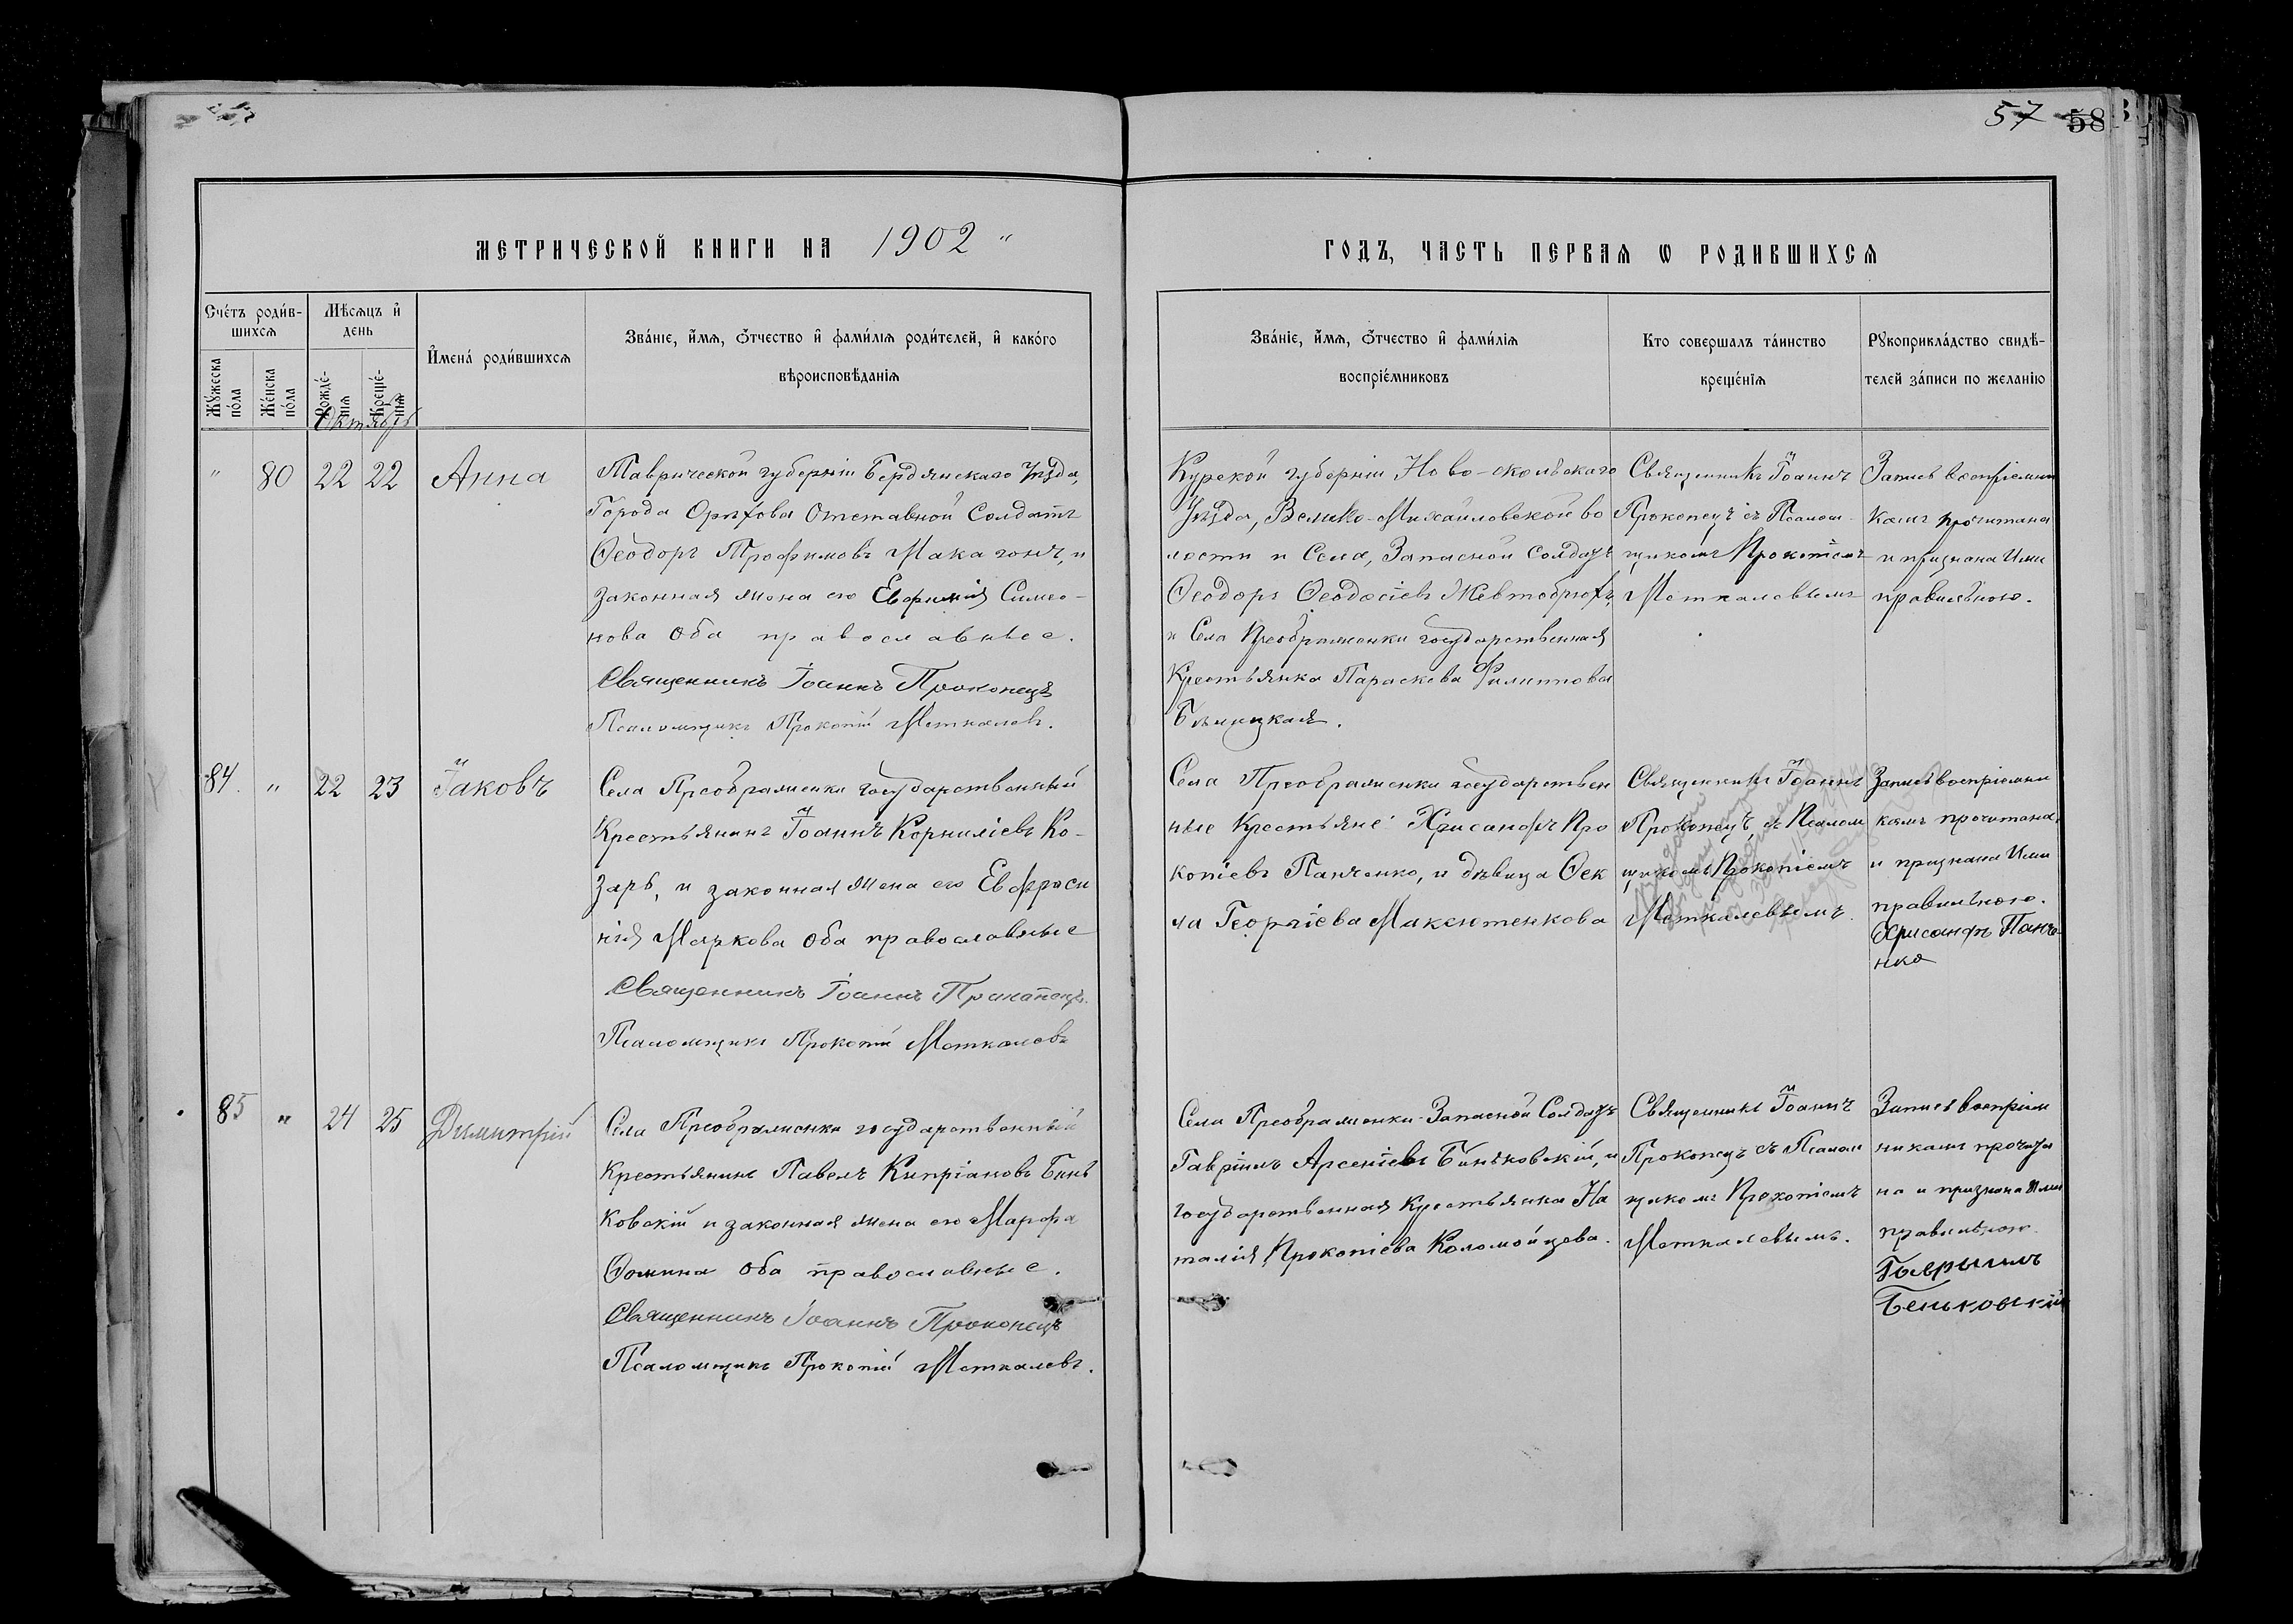 57 58
МЕТРИЧЕСКОЙ КНИГИ НА 1902 "
ГОДЪ, ЧАСТЬ ПЕРВАЯ Ѡ РОДИВШИХСЯ
Счетъ родив-
шихся
Мѣсяцъ и
день
Мужеска
пола
Женска
пола
Рожде-
нія
Креще-
нія
Октябрь
Имена родившихся
Званіе, имя, отчество и фамилія родителей, и какого
вѣроисповѣданія
Званіе, имя, отчество и фамилія
воспріемниковъ
Кто совершалъ таинство
крещенія
Рукоприкладство свидѣ-
телей записи по желанію
" 80 22 22 Анна
Таврической губерніи Бердянскаго Уѣзда,
Города Орѣхова Отставной Солдатъ
Ѳеодоръ Трофимовъ Макагонъ, и
законная жена его Евфимія Симео-
нова Оба православные.
Священникъ Іоаннъ Прокопецъ
Псаломщикъ Прокопій Меткалевъ.
Курской губерніи Ново-оскольскаго
Уѣзда, Велико-Михайловской во
лости и Села, Запасной Солдатъ
Ѳеодоръ Ѳеодосіевъ Жевтобрюхъ,
и Села Преображенки государственная
Крестьянка Параскева Филиппова
Бѣлицкая.
Священникъ Іоаннъ
Прокопецъ съ Псалом-
щикомъ Прокопіемъ
Меткалевымъ
Запись воспріемни
камъ прочитана
и признана Ими
правильною.
84. " 22 23 Іаковъ
Села Преображенки государственный
Крестьянинъ Іоаннъ Корниліевъ Ко-
зарь, и законная жена его Евфроси
нія Маркова Оба православные
Священникъ Іоаннъ Прокопецъ.
Псаломщикъ Прокопій Меткалевъ
Села Преображенки государствен
ные Крестьяне: Хрисанфъ Про
копіевъ Панченко, и дѣвица Ѳек
ла Георгіева Максютенкова
Священникъ Іоаннъ
Прокопецъ, съ Псалом
щикомъ Прокопіемъ
Меткалевымъ.
Запись воспріемни
камъ прочитана,
и признана Ими
правильною.
Хрисанфъ Панче-
нко
85 " 24 25 Димитрій
Села Преображенки государственный
Крестьянинъ Павелъ Кипріановъ Бинь
ковскій и законная жена его Марфа
Ѳомина Оба православные.
Священникъ Іоаннъ Прокопецъ
Псаломщикъ Прокопій Меткалевъ.
Села Преображенки Запасной Солдатъ
Гавріилъ Арсеніевъ Биньковскій, и
государственная Крестьянка На
талія Прокопіева Коломойцева.
Священникъ Іоаннъ
Прокопецъ съ Псалом
щикомъ Прокопіемъ
Меткалевымъ.
Запись воспріем
никамъ прочита
на и признана Ими
правильною
Гаврыилъ
Беньковский